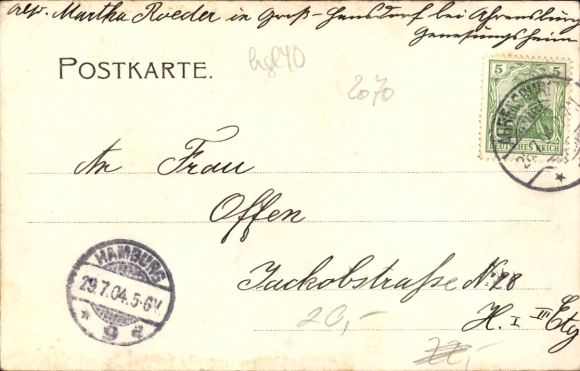 Abs. Martha Roeder in Groß-Hansdorf bei Ahrensburg
Genesungsheim
POSTKARTE.
hgl40
2070
5 5
DEUTSCHES REICH
AHRENSBURG
An Frau
Offen
Jackobstraße No. 28
H. I III Etg
HAMBURG
29.7.04.5-6V.
* 9 d
20,-